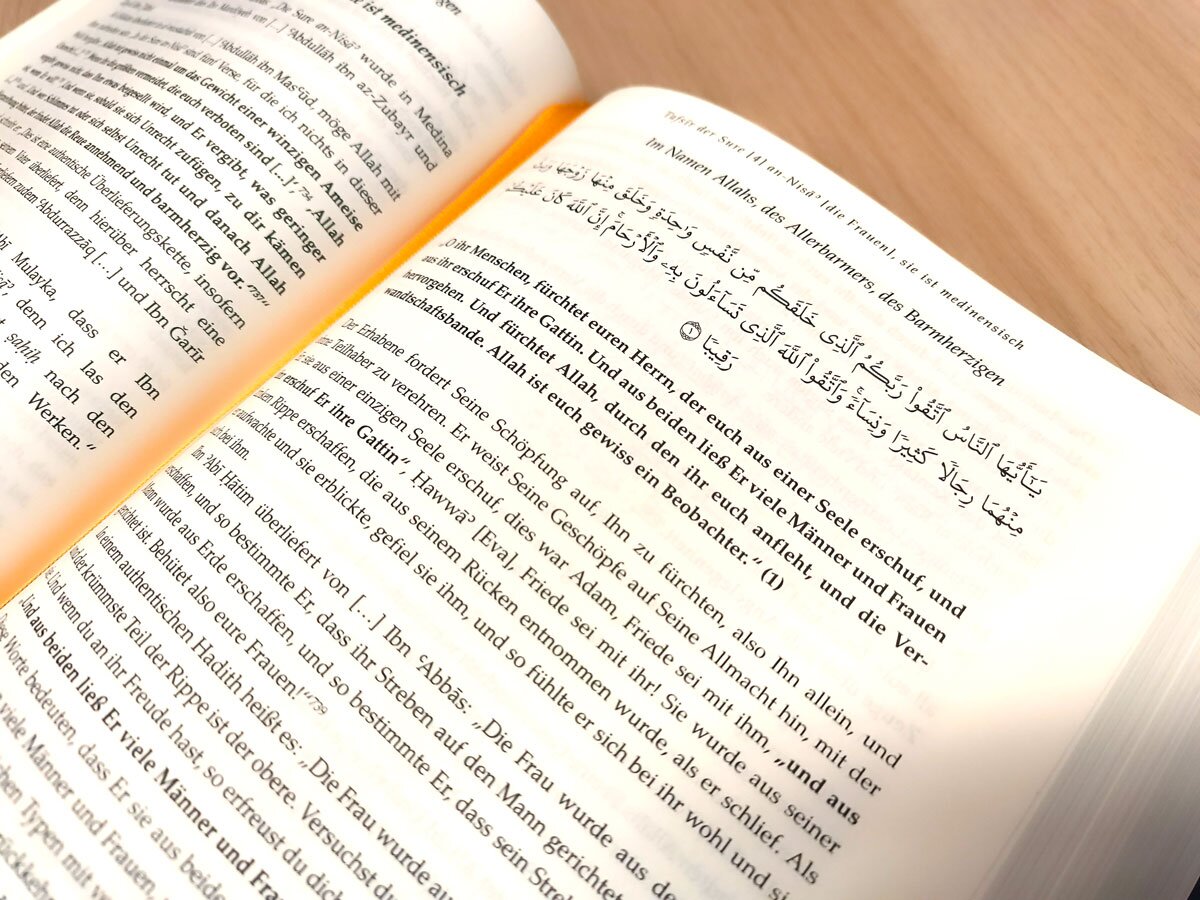 ist medinensisch
„Die Sure an-Nisāʾ wurde in Medina
ʿAbdullāh ibn az-Zubayr und
ʿAbdullāh ibn Masʿūd, möge Allah mit
sind fünf Verse, für die ich nichts in dieser
Allah gewiss nicht einmal um das Gewicht einer winzigen Ameise
die euch verboten sind [...]‘ ⁷³⁴ Allah
und Er vergibt, was geringer
sich Unrecht zufügen, zu dir kämen
oder sich selbst Unrecht tut und danach Allah
findet Allah die Reue annehmend und barmherzig vor.‘ ⁷³⁷“
„Das ist eine authentische Überlieferungskette, insofern
überliefert, denn hierüber herrscht eine
zudem ʿAbdurrazzāq [...] und Ibn Ǧarīr
Abī Mulayka, dass er Ibn
denn ich las den
ṣaḥīḥ nach den
den Werken.“
Tafsīr der Sure [4] an-Nisāʾ [die Frauen], sie ist medinensisch
Im Namen Allahs, des Allerbarmers, des Barmherzigen
يَـٰٓأَيُّهَا ٱلنَّاسُ ٱتَّقُوا۟ رَبَّكُمُ ٱلَّذِى خَلَقَكُم مِّن نَّفْسٍ وَٰحِدَةٍ وَخَلَقَ مِنْهَا زَوْجَهَا وَبَثَّ
مِنْهُمَا رِجَالًا كَثِيرًا وَنِسَآءً ۚ وَٱتَّقُوا۟ ٱللَّهَ ٱلَّذِى تَسَآءَلُونَ بِهِۦ وَٱلْأَرْحَامَ ۚ إِنَّ ٱللَّهَ كَانَ عَلَيْكُمْ
رَقِيبًا ١
„O ihr Menschen, fürchtet euren Herrn, der euch aus einer Seele erschuf, und
aus ihr erschuf Er ihre Gattin. Und aus beiden ließ Er viele Männer und Frauen
hervorgehen. Und fürchtet Allah, durch den ihr euch anfleht, und die Ver-
wandtschaftsbande. Allah ist euch gewiss ein Beobachter.“ (1)
Der Erhabene fordert Seine Schöpfung auf, Ihn zu fürchten, also Ihn allein, und
Teilhaber zu verehren. Er weist Seine Geschöpfe auf Seine Allmacht hin, mit der
sie aus einer einzigen Seele erschuf, dies war Adam, Friede sei mit ihm, „und aus
erschuf Er ihre Gattin“, Hawwāʾ [Eva], Friede sei mit ihr! Sie wurde aus seiner
Rippe erschaffen, die aus seinem Rücken entnommen wurde, als er schlief. Als
aufwachte und sie erblickte, gefiel sie ihm, und so fühlte er sich bei ihr wohl und
bei ihm.
Ibn ʾAbī Ḥātim überliefert von [...] Ibn ʿAbbās: „Die Frau wurde aus
erschaffen, und so bestimmte Er, dass ihr Streben auf den Mann gerichtet
wurde aus Erde erschaffen, und so bestimmte Er, dass sein
gerichtet ist. Behütet also eure Frauen!“⁷³⁹
In einem authentischen Hadith heißt es: „Die Frau wurde
der krümmste Teil der Rippe ist der obere. Versuchst du
Und wenn du an ihr Freude hast, so erfreust du dich
„Und aus beiden ließ Er viele Männer und
Worte bedeuten, dass Er sie aus
viele Männer und Frauen,
Typen mit